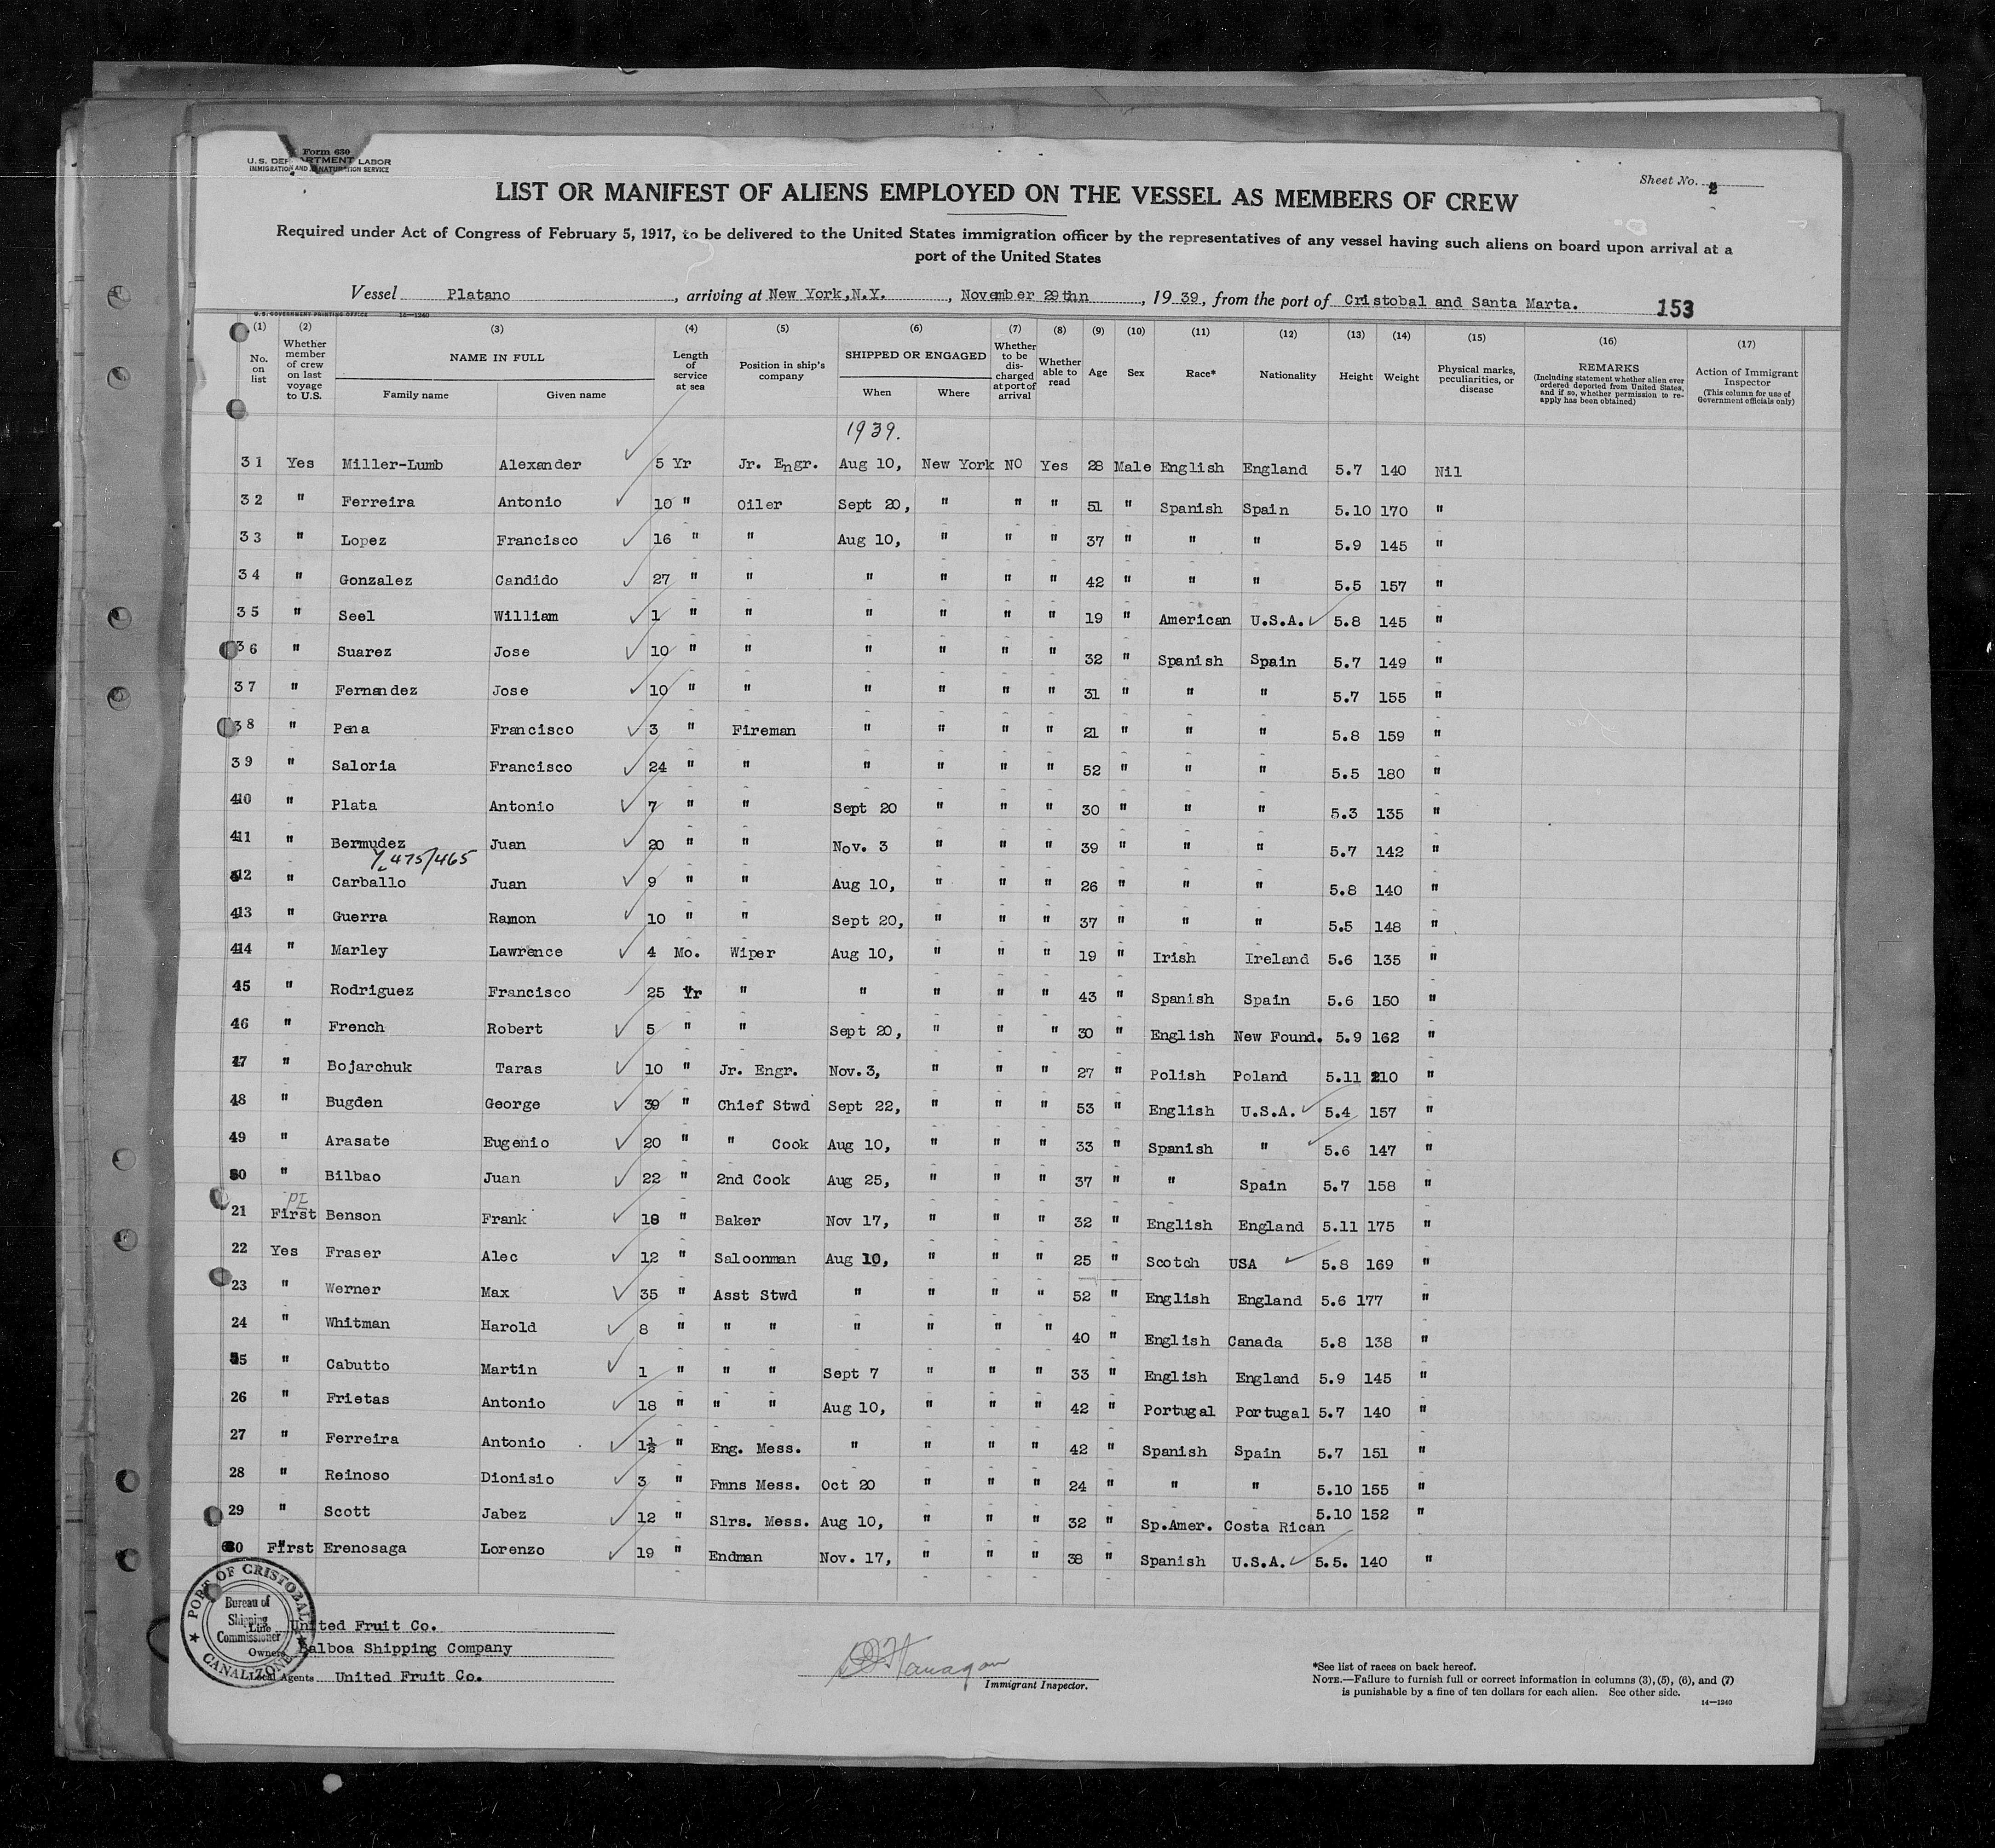 Form 630
U. S. DEPARTMENT LABOR
IMMIGRATION AND NATURALIZATION SERVICE
Sheet No. 2
LIST OR MANIFEST OF ALIENS EMPLOYED ON THE VESSEL AS MEMBERS OF CREW
Required under Act of Congress of February 5, 1917, to be delivered to the United States immigration officer by the representatives of any vessel having such aliens on board upon arrival at a
port of the United States
Vessel Platano, arriving at New York,N.Y., November 29thn, 1939, from the port of Cristobal and Santa Marta. 153
U.S. GOVERNMENT PRINTING OFFICE 14—1240
(1) (2) (3) (4) (5) (6) (7) (8) (9) (10) (11) (12) (13) (14) (15) (16) (17)
No. on list
Whether member of crew on last voyage to U.S.
NAME IN FULL
Family name Given name
Length of service at sea
Position in ship's company
SHIPPED OR ENGAGED
When Where
Whether to be discharged at port of arrival
Whether able to read
Age
Sex
Race*
Nationality
Height
Weight
Physical marks, peculiarities, or disease
REMARKS
(Including statement whether alien ever ordered deported from United States, and if so, whether permission to reapply has been obtained)
Action of Immigrant Inspector
(This column for use of Government officials only)
1939.
31 Yes Miller-Lumb Alexander 5 Yr Jr. Engr. Aug 10, New York NO Yes 28 Male English England 5.7 140 Nil
32 " Ferreira Antonio 10 " Oiler Sept 20, " " " 51 " Spanish Spain 5.10 170 "
33 " Lopez Francisco 16 " " Aug 10, " " " 37 " " " 5.9 145 "
34 " Gonzalez Candido 27 " " " " " " 42 " " " 5.5 157 "
35 " Seel William 1 " " " " " " 19 " American U.S.A. 5.8 145 "
36 " Suarez Jose 10 " " " " " " 32 " Spanish Spain 5.7 149 "
37 " Fernandez Jose 10 " " " " " " 31 " " " 5.7 155 "
38 " Pena Francisco 3 " Fireman " " " " 21 " " " 5.8 159 "
39 " Saloria Francisco 24 " " " " " " 52 " " " 5.5 180 "
40 " Plata Antonio 7 " " Sept 20 " " " 30 " " " 5.3 135 "
41 " Bermudez Juan 20 " " Nov. 3 " " " 39 " " " 5.7 142 "
475/465
42 " Carballo Juan 9 " " Aug 10, " " " 26 " " " 5.8 140 "
43 " Guerra Ramon 10 " " Sept 20, " " " 37 " " " 5.5 148 "
44 " Marley Lawrence 4 Mo. Wiper Aug 10, " " " 19 " Irish Ireland 5.6 135 "
45 " Rodriguez Francisco 25 Yr " " " " " 43 " Spanish Spain 5.6 150 "
46 " French Robert 5 " " Sept 20, " " " 30 " English New Found. 5.9 162 "
47 " Bojarchuk Taras 10 " Jr. Engr. Nov.3, " " " 27 " Polish Poland 5.11 210 "
48 " Bugden George 39 " Chief Stwd Sept 22, " " " 53 " English U.S.A. 5.4 157 "
49 " Arasate Eugenio 20 " " Cook Aug 10, " " " 33 " Spanish " 5.6 147 "
50 " Bilbao Juan 22 " 2nd Cook Aug 25, " " " 37 " " Spain 5.7 158 "
PI
21 First Benson Frank 18 " Baker Nov 17, " " " 32 " English England 5.11 175 "
22 Yes Fraser Alec 12 " Saloonman Aug 10, " " " 25 " Scotch USA 5.8 169 "
23 " Werner Max 35 " Asst Stwd " " " " 52 " English England 5.6 177 "
24 " Whitman Harold 8 " " " " " " " 40 " English Canada 5.8 138 "
55 " Cabutto Martin 1 " " " Sept 7 " " " 33 " English England 5.9 145 "
26 " Frietas Antonio 18 " " " Aug 10, " " " 42 " Portugal Portugal 5.7 140 "
27 " Ferreira Antonio 1½ " Eng. Mess. " " " " 42 " Spanish Spain 5.7 151 "
28 " Reinoso Dionisio 3 " Fmns Mess. Oct 20 " " " 24 " " " 5.10 155 "
29 " Scott Jabez 12 " Slrs. Mess. Aug 10, " " " 32 " Sp.Amer. Costa Rican 5.10 152 "
60 First Erenosaga Lorenzo 19 " Endman Nov. 17, " " " 38 " Spanish U.S.A. 5.5. 140 "
PORT OF CRISTOBAL
Bureau of
Shipping
Commissioner
CANAL ZONE
Line United Fruit Co.
Owners Balboa Shipping Company
Local Agents United Fruit Co.
Immigrant Inspector.
*See list of races on back hereof.
NOTE.—Failure to furnish full or correct information in columns (3), (5), (6), and (7)
is punishable by a fine of ten dollars for each alien. See other side.
14—1240